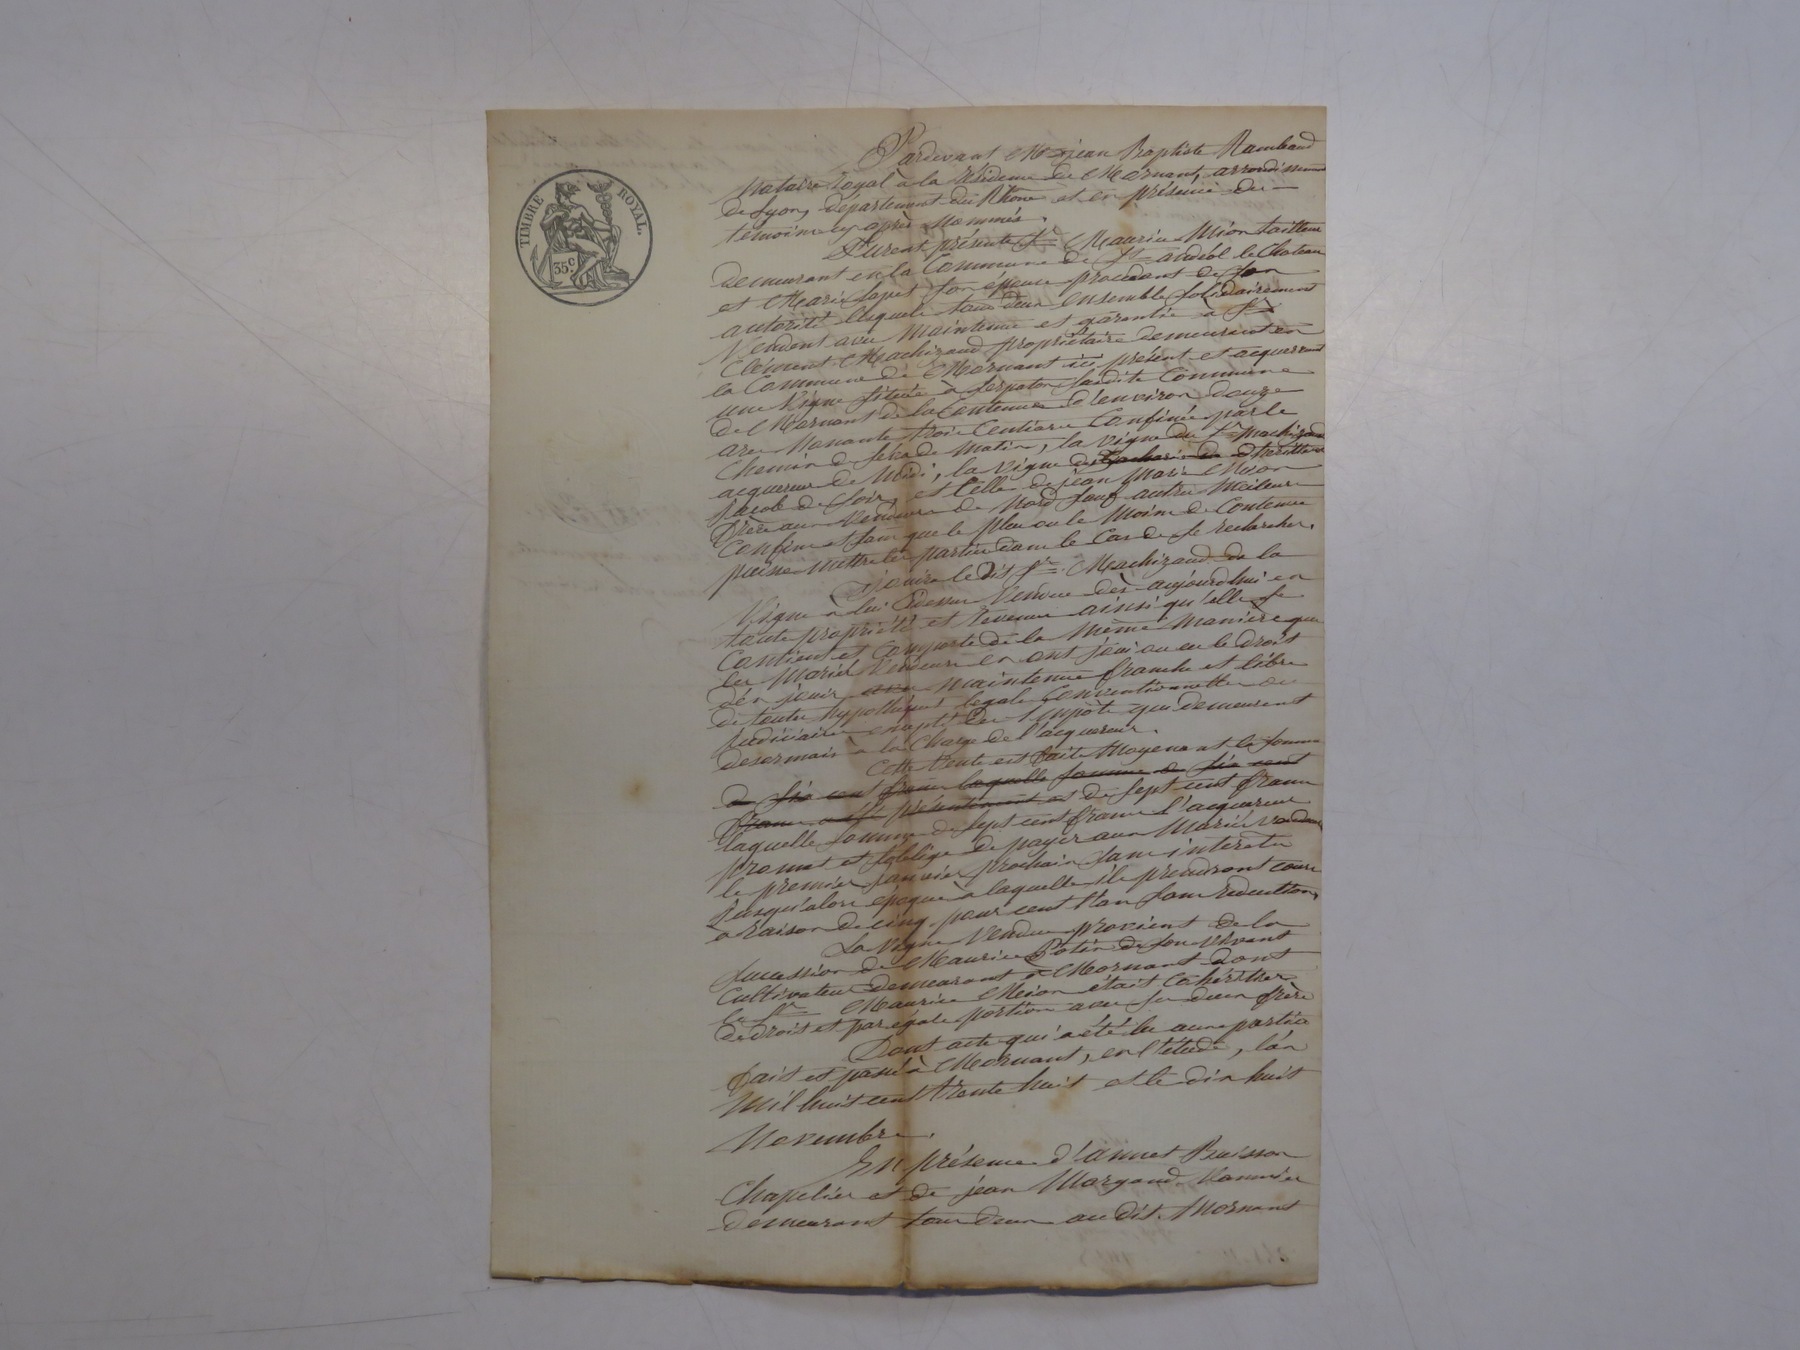 TIMBRE ROYAL.
35c.
Pardevant Me jean Baptiste Rambaud
Notaire Royal à la Résidence de Mornant, arrondissement
de Lyon, département du Rhône et en présence des
temoins cy après Nommés.
Furent présents Sr Maurice Mion tailleur
demeurant en la Commune de St andéol le Chateau
et Marie son épouse procedant de son
autorité lesquels tous deux ensemble solidairement
Vendent avec Maintenue et garantie à Sr
Clément Machizaud propriétaire demeurant en
la Commune de Mornant ici présent et acquerant
une Vigne située à susdite Commune
de Mornant de la Contenue d'environ douze
ares Nonante trois Centiares Confinée par le
Chemin de de Matin, la vigne du Sr Machizaud
acquereur de Midi, la vigne des héritiers
Jacob de soir, et Celle de jean Marie Mion
frère aux Vendeurs de Nord sauf autres Meilleurs
Confins et sans que le plus ou le Moins de Contenue
puisse Mettre les parties dans le Cas de se rechercher.
jouira le dit Sr Machizaud de la
Vigne à lui Cidessus Vendue dès aujourdhui en
toute propriété et Revenus ainsi qu'elle se
Contient et Comporte de la Même Manière que
les Mariés Vendeurs en ont joui ou eu le droit
d'en jouir avec Maintenue franche et libre
de toutes hypothèques legales Conventionnelles ou
judiciaires excepté des Impôts qui demeurent
desormais à la Charge de l'acquereur.
Cette Vente est faite Moyenant la somme
de Six cent francs laquelle somme de Six cent
francs présentement et de sept cent francs
laquelle somme de sept cent francs l'acquereur
promet et s'oblige de payer aux Mariés vendeurs
le premier janvier prochain sans interets
jusqu'alors époque à laquelle ils prendront cours
à raison de cinq pour cent l'an sans reduction.
La Vigne Vendue provient de la
succession de Maurice de son Vivant
Cultivateur demeurant à Mornant dont
le Sr Maurice Mion était Cohéritier
de droit et par égale portion avec ses deux frères
Dont acte qui a été lu aux parties
fait et passé à Mornant, en l'étude, l'an
Mil huit cent trente huit et le dix huit
Novembre.
En présence d'annet Buisson
Chapelier et de jean Margand Vannier
demeurant tous deux audit Mornant